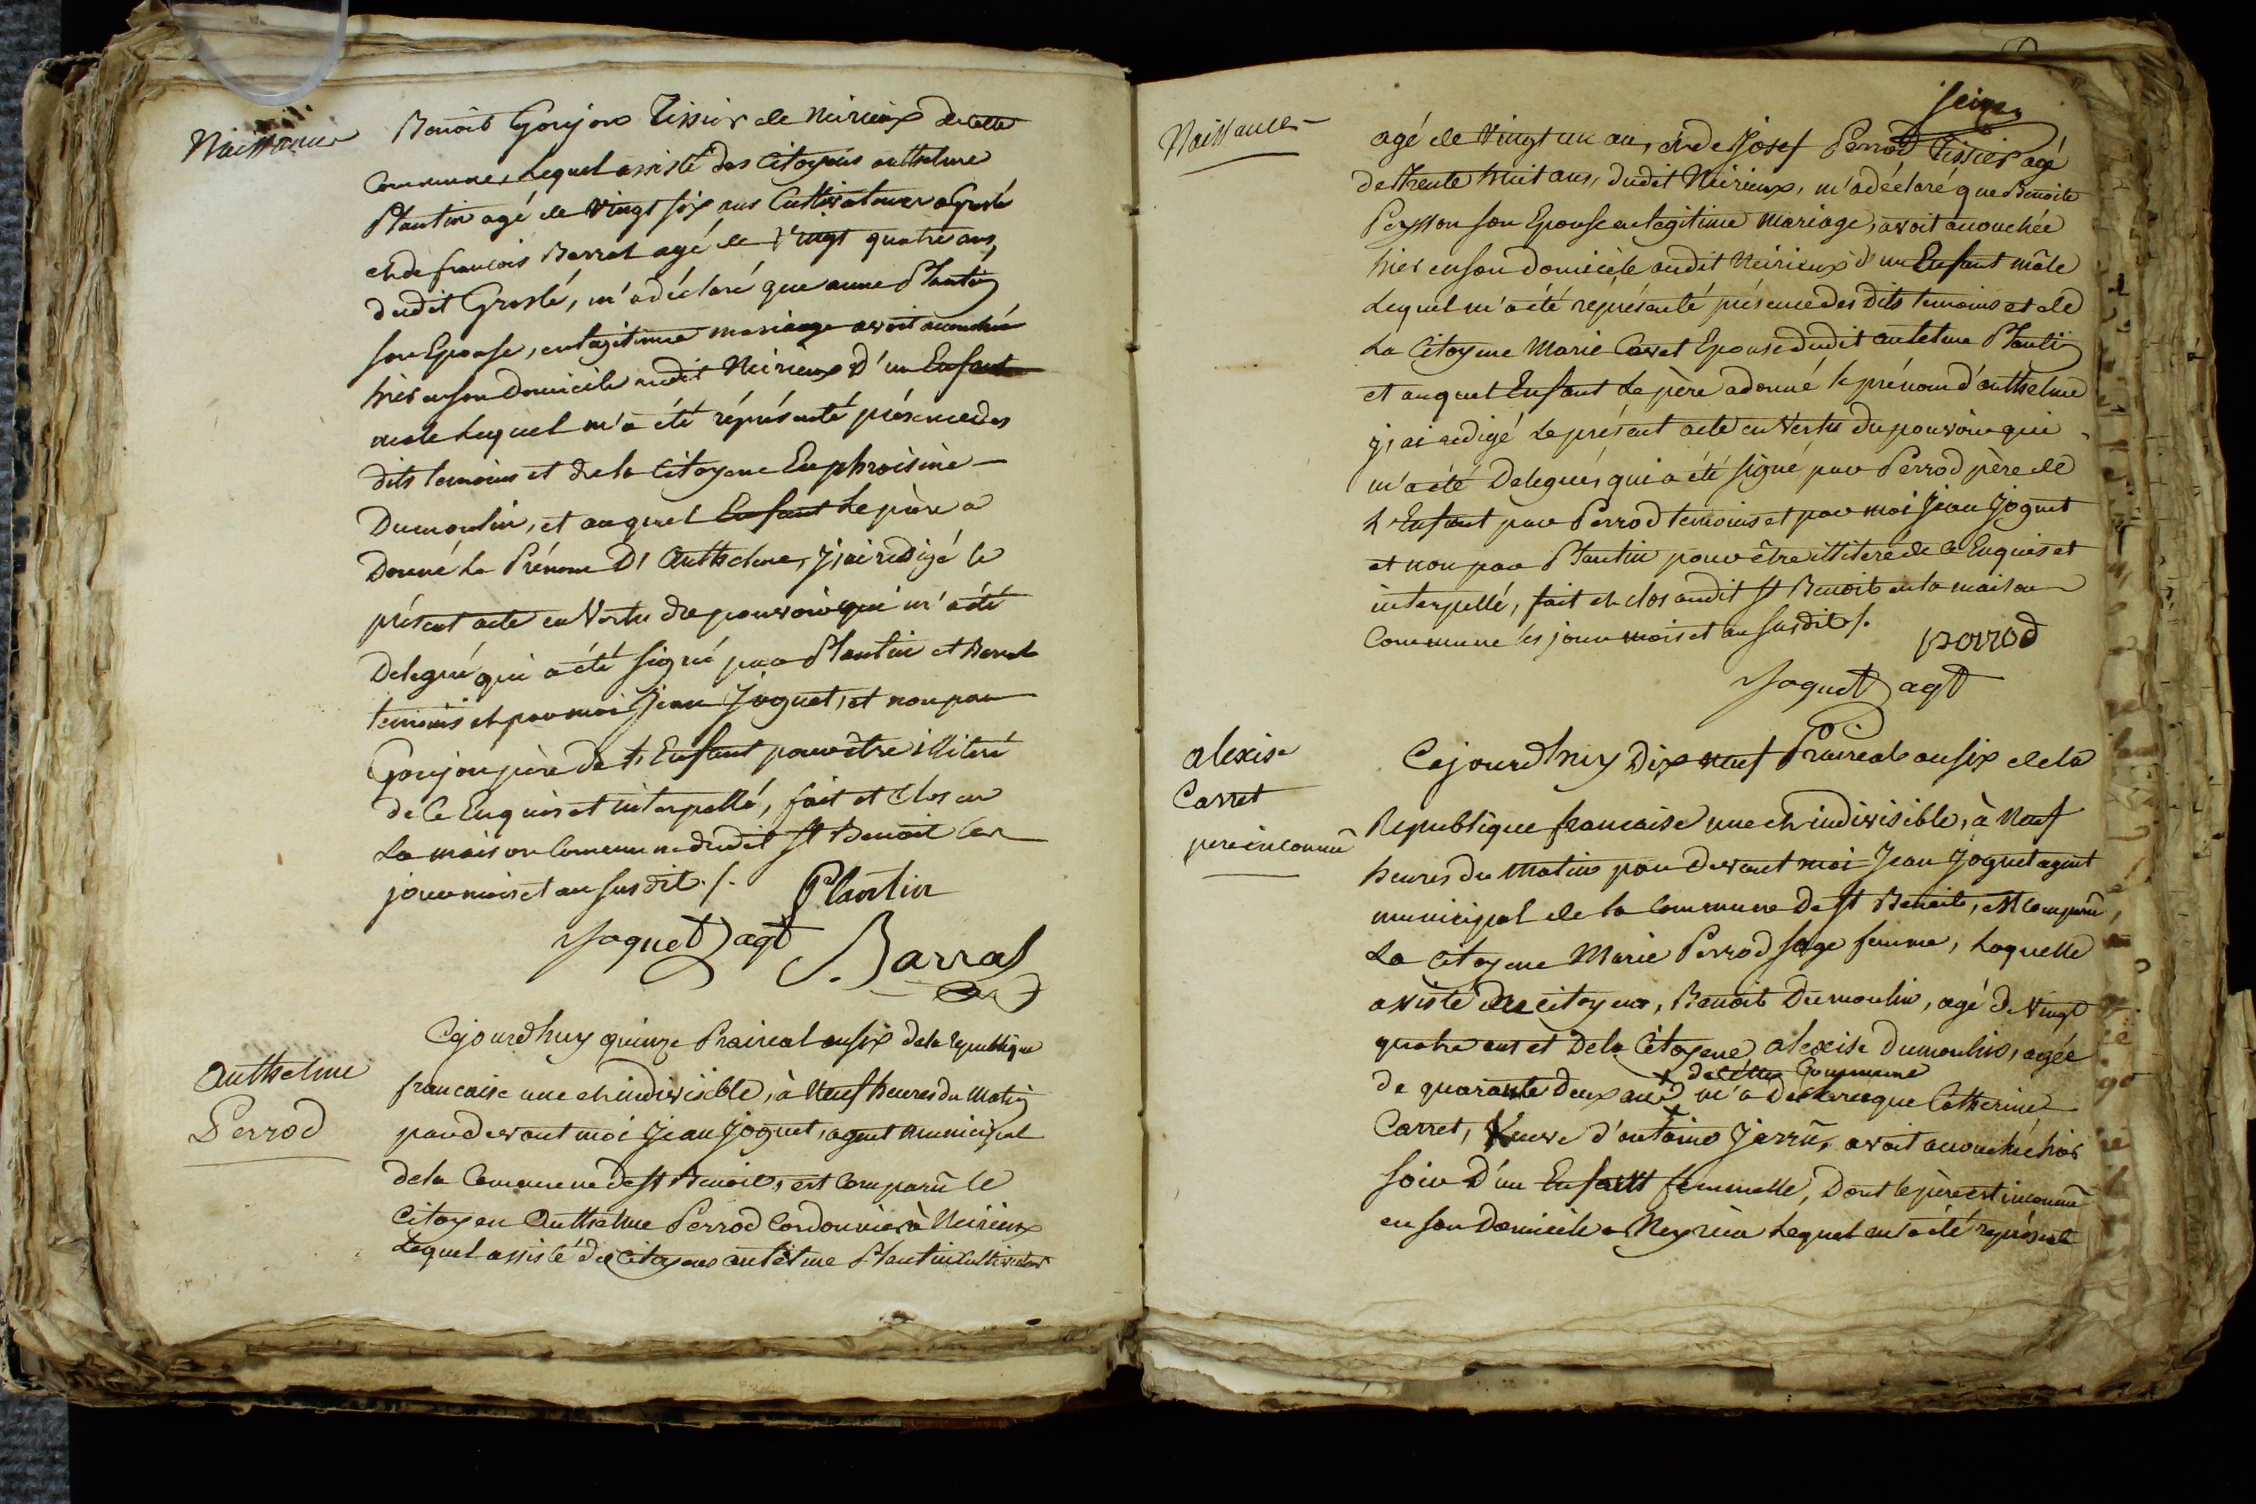 Naissance
Benoit Goujon Tissier de Neirieux de cette
Commune, Lequel assisté des Citoyens anthelme
Plantin agé de vingt six ans Cultivateur a Groslé
et de francois Barral agé de Vingt quatre ans,
dudit Groslé, m'a déclaré que anne Plantin
son Epouse, en legitime mariage avoit accouchée
hier en son domicile audit Neirieux D'un Enfant
male Lequel m'a été réprésenté présence des
dits temoins et de la Citoyene Euphroisine
Dumoulin, et auquel Enfant Le père a
Donné Le Prénom D'Anthelme, j'ai redigé le
présent acte en Vertu du pouvoir qui m'a été
Delegué qui a été signé par Plantin et Barral
temoins et par moi Jean Joguet, et non par
Goujon père de L'Enfant pour être illiteré
de Ce Enquis et interpellé, fait et Clos en
La maison Commune dudit St Benoit les
jour mois et an susdit ./. Plantin
Joguet agt Barral
Anthelme
Perrod
Cejourdhuy quinze Prairial an six de la republique
francaise une et indivisible, à Neuf heures du Matin
par devant moi Jean Joguet, agent municipal
de la Commune de St Benoit, est Comparû le
Citoyen Anthelme Perrod Cordonnier à Neirieux
Lequel assisté des Citoyens antelme Plantin Cultivateur
Naissances
seize
agé de Vingt un an, et de Josef Perrod Tissier agé
de trente huit ans, dudit Neirieux, m'a déclaré que Benoite
Peysson son Epouse en legitime Mariage, avoit accouchée
hier en son domicile audit Neirieux d'un Enfant mâle
Lequel m'a été représenté présence des dits temoins et de
La Citoyene Marie Carret Epouse dudit antelme Plantin
et auquel Enfant Le père a donné le prénom d'anthelme
j'ai redigé Le présent acte en Vertu du pouvoir qui
m'a été Delegué, qui a été signé par Perrod père de
L'Enfant par Perrod temoins et par moi Jean Joguet
et non par Plantin pour être illiteré de Ce Enquis et
interpellé, fait et clos audit St Benoit en la maison
Commune les jour mois et an susdits ./. perrod
Joguet agt
alexise
Carret
pere inconnû
Cejourdhuy Dix neuf Prairial an six de la
Republique francaise une et indivisible, à Neuf
heures du Matin par devant moi Jean Joguet agent
municipal de la Commune de St Benoit, est Comparû,
La Citoyene Marie Perrod sage femme, Laquelle
assisté du Citoyen, Benoit Dumoulin, agé de Vingt
quatre ans et De la Citoyene alexise Dumoulin, agée
de cette Commune
de quarante deux ans m'a Declaré que Catherine
Carret, Veuve d'antoine Jarrû, avoit accouchée hier
soir D'un Enfant femmelle, Dont le père est inconnû
en son Domicile a Neyrieu Lequel m'a été représenté